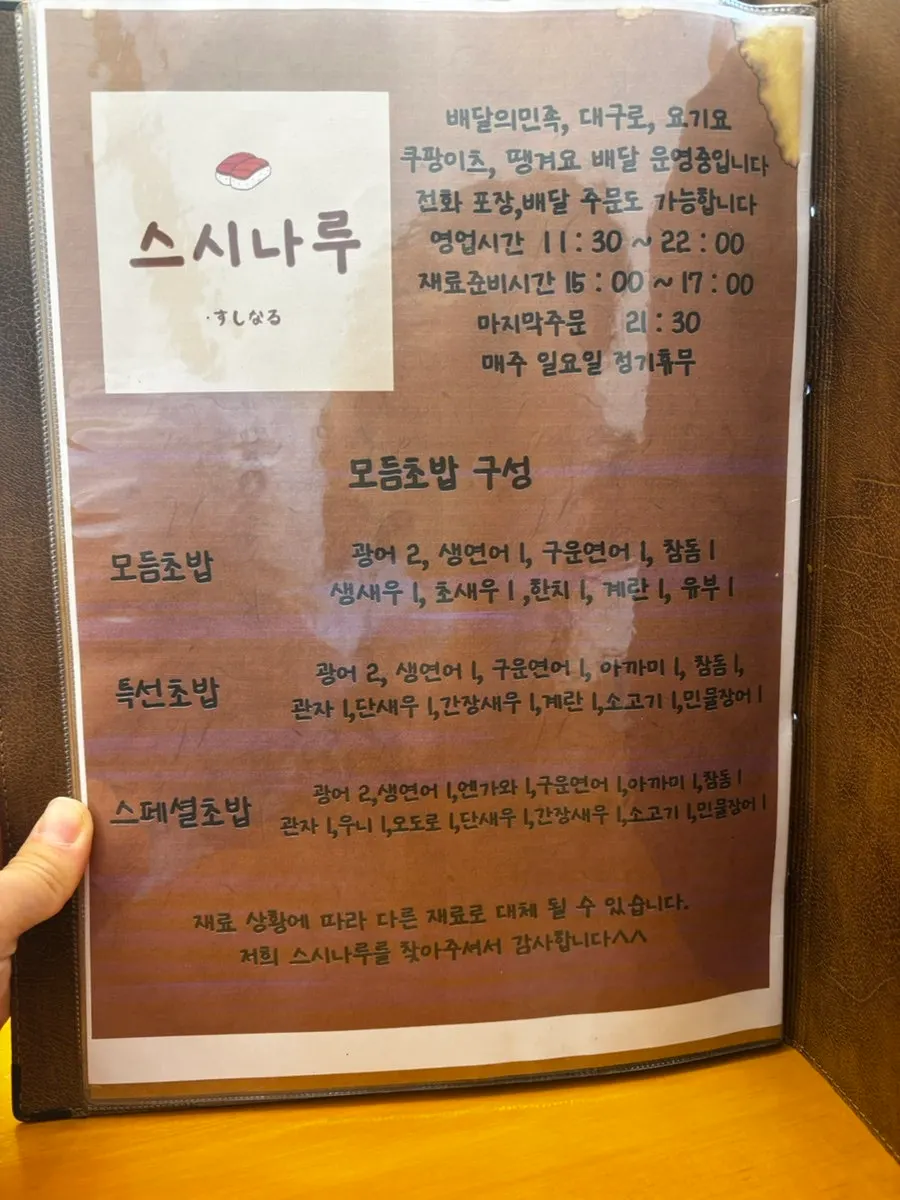 스시나루
·すしなる
배달의민족, 대구로, 요기요
쿠팡이츠, 땡겨요 배달 운영중입니다
전화 포장,배달 주문도 가능합니다
영업시간 11 : 30 ~ 22 : 00
재료준비시간 15 : 00 ~ 17 : 00
마지막주문 21 : 30
매주 일요일 정기휴무
모듬초밥 구성
모듬초밥
광어 2, 생연어 1, 구운연어 1, 참돔 1
생새우 1, 초새우 1 ,한치 1, 계란 1, 유부 1
특선초밥
광어 2, 생연어 1, 구운연어 1, 아까미 1, 참돔 1,
관자 1,단새우 1,간장새우 1,계란 1,소고기 1,민물장어 1
스페셜초밥
광어 2,생연어 1,엔가와 1,구운연어 1,아까미 1,참돔 1
관자 1,우니 1,오도로 1,단새우 1,간장새우 1,소고기 1,민물장어 1
재료 상황에 따라 다른 재료로 대체 될 수 있습니다.
저희 스시나루를 찾아주셔서 감사합니다^^